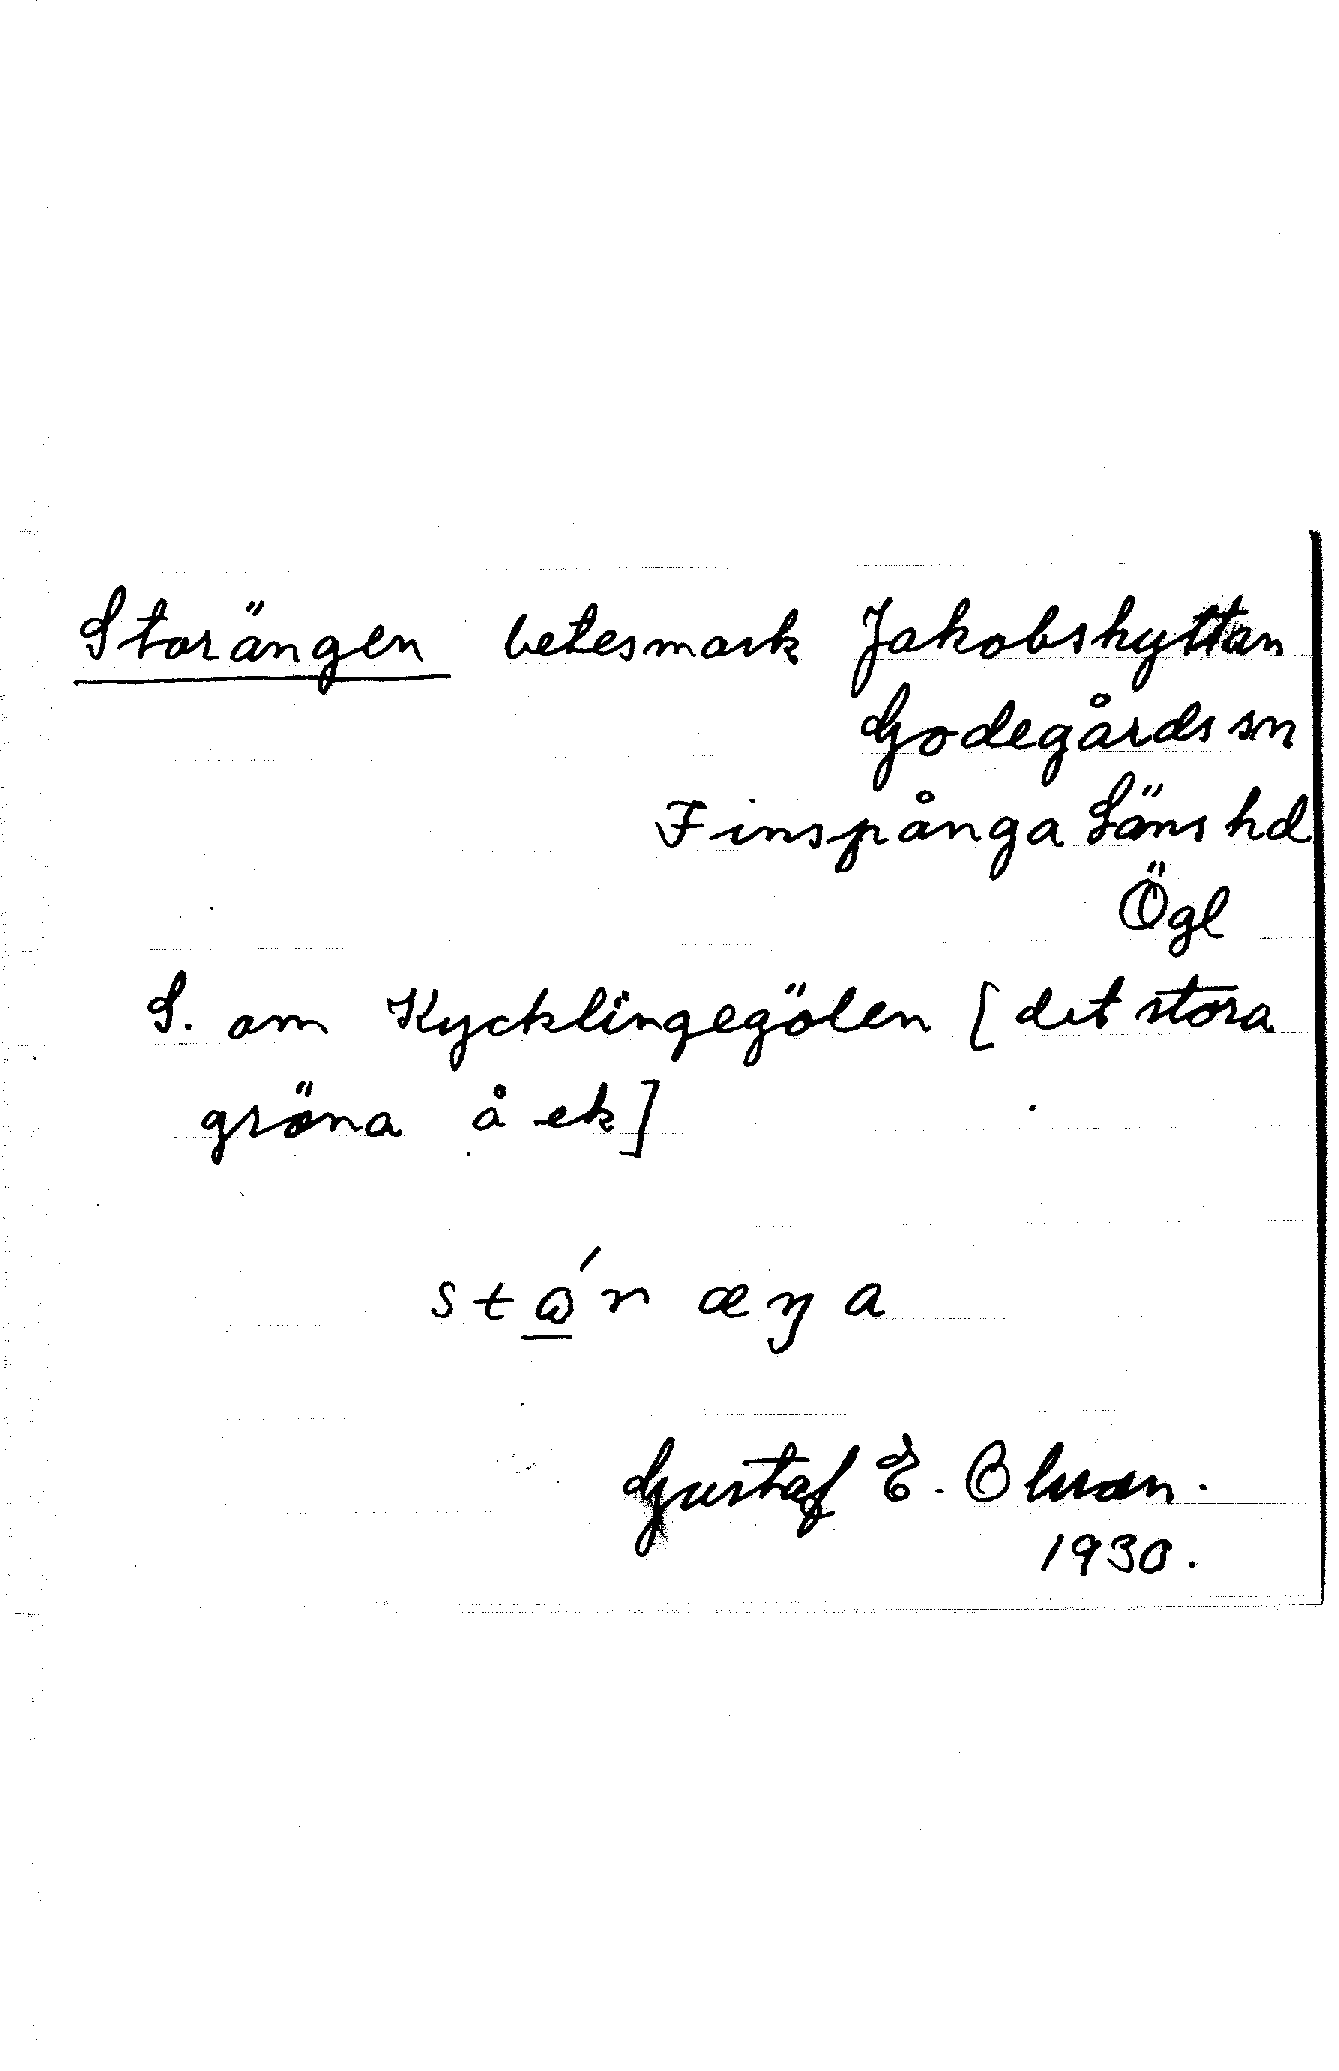 Storängen betesmark Jakobshyttan
Godegårds sn
Finspånga Läns hd
Ögl
S. om Kycklingegölen [det stora
gröna å ek]
stώ̲r æŋa
Gustaf E. Olsson.
1930.